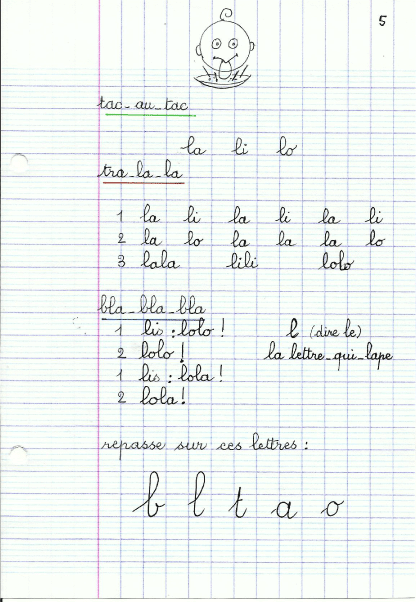 5
tac-au-tac
la li lo
tra-la-la
1 la li la li la li
2 la lo la la la lo
3 lala lili lolo
bla-bla-bla
1 lis : lolo ! l (dire le)
2 lolo ! la lettre-qui-lape
1 lis : lola !
2 lola !
repasse sur ces lettres :
b l t a o